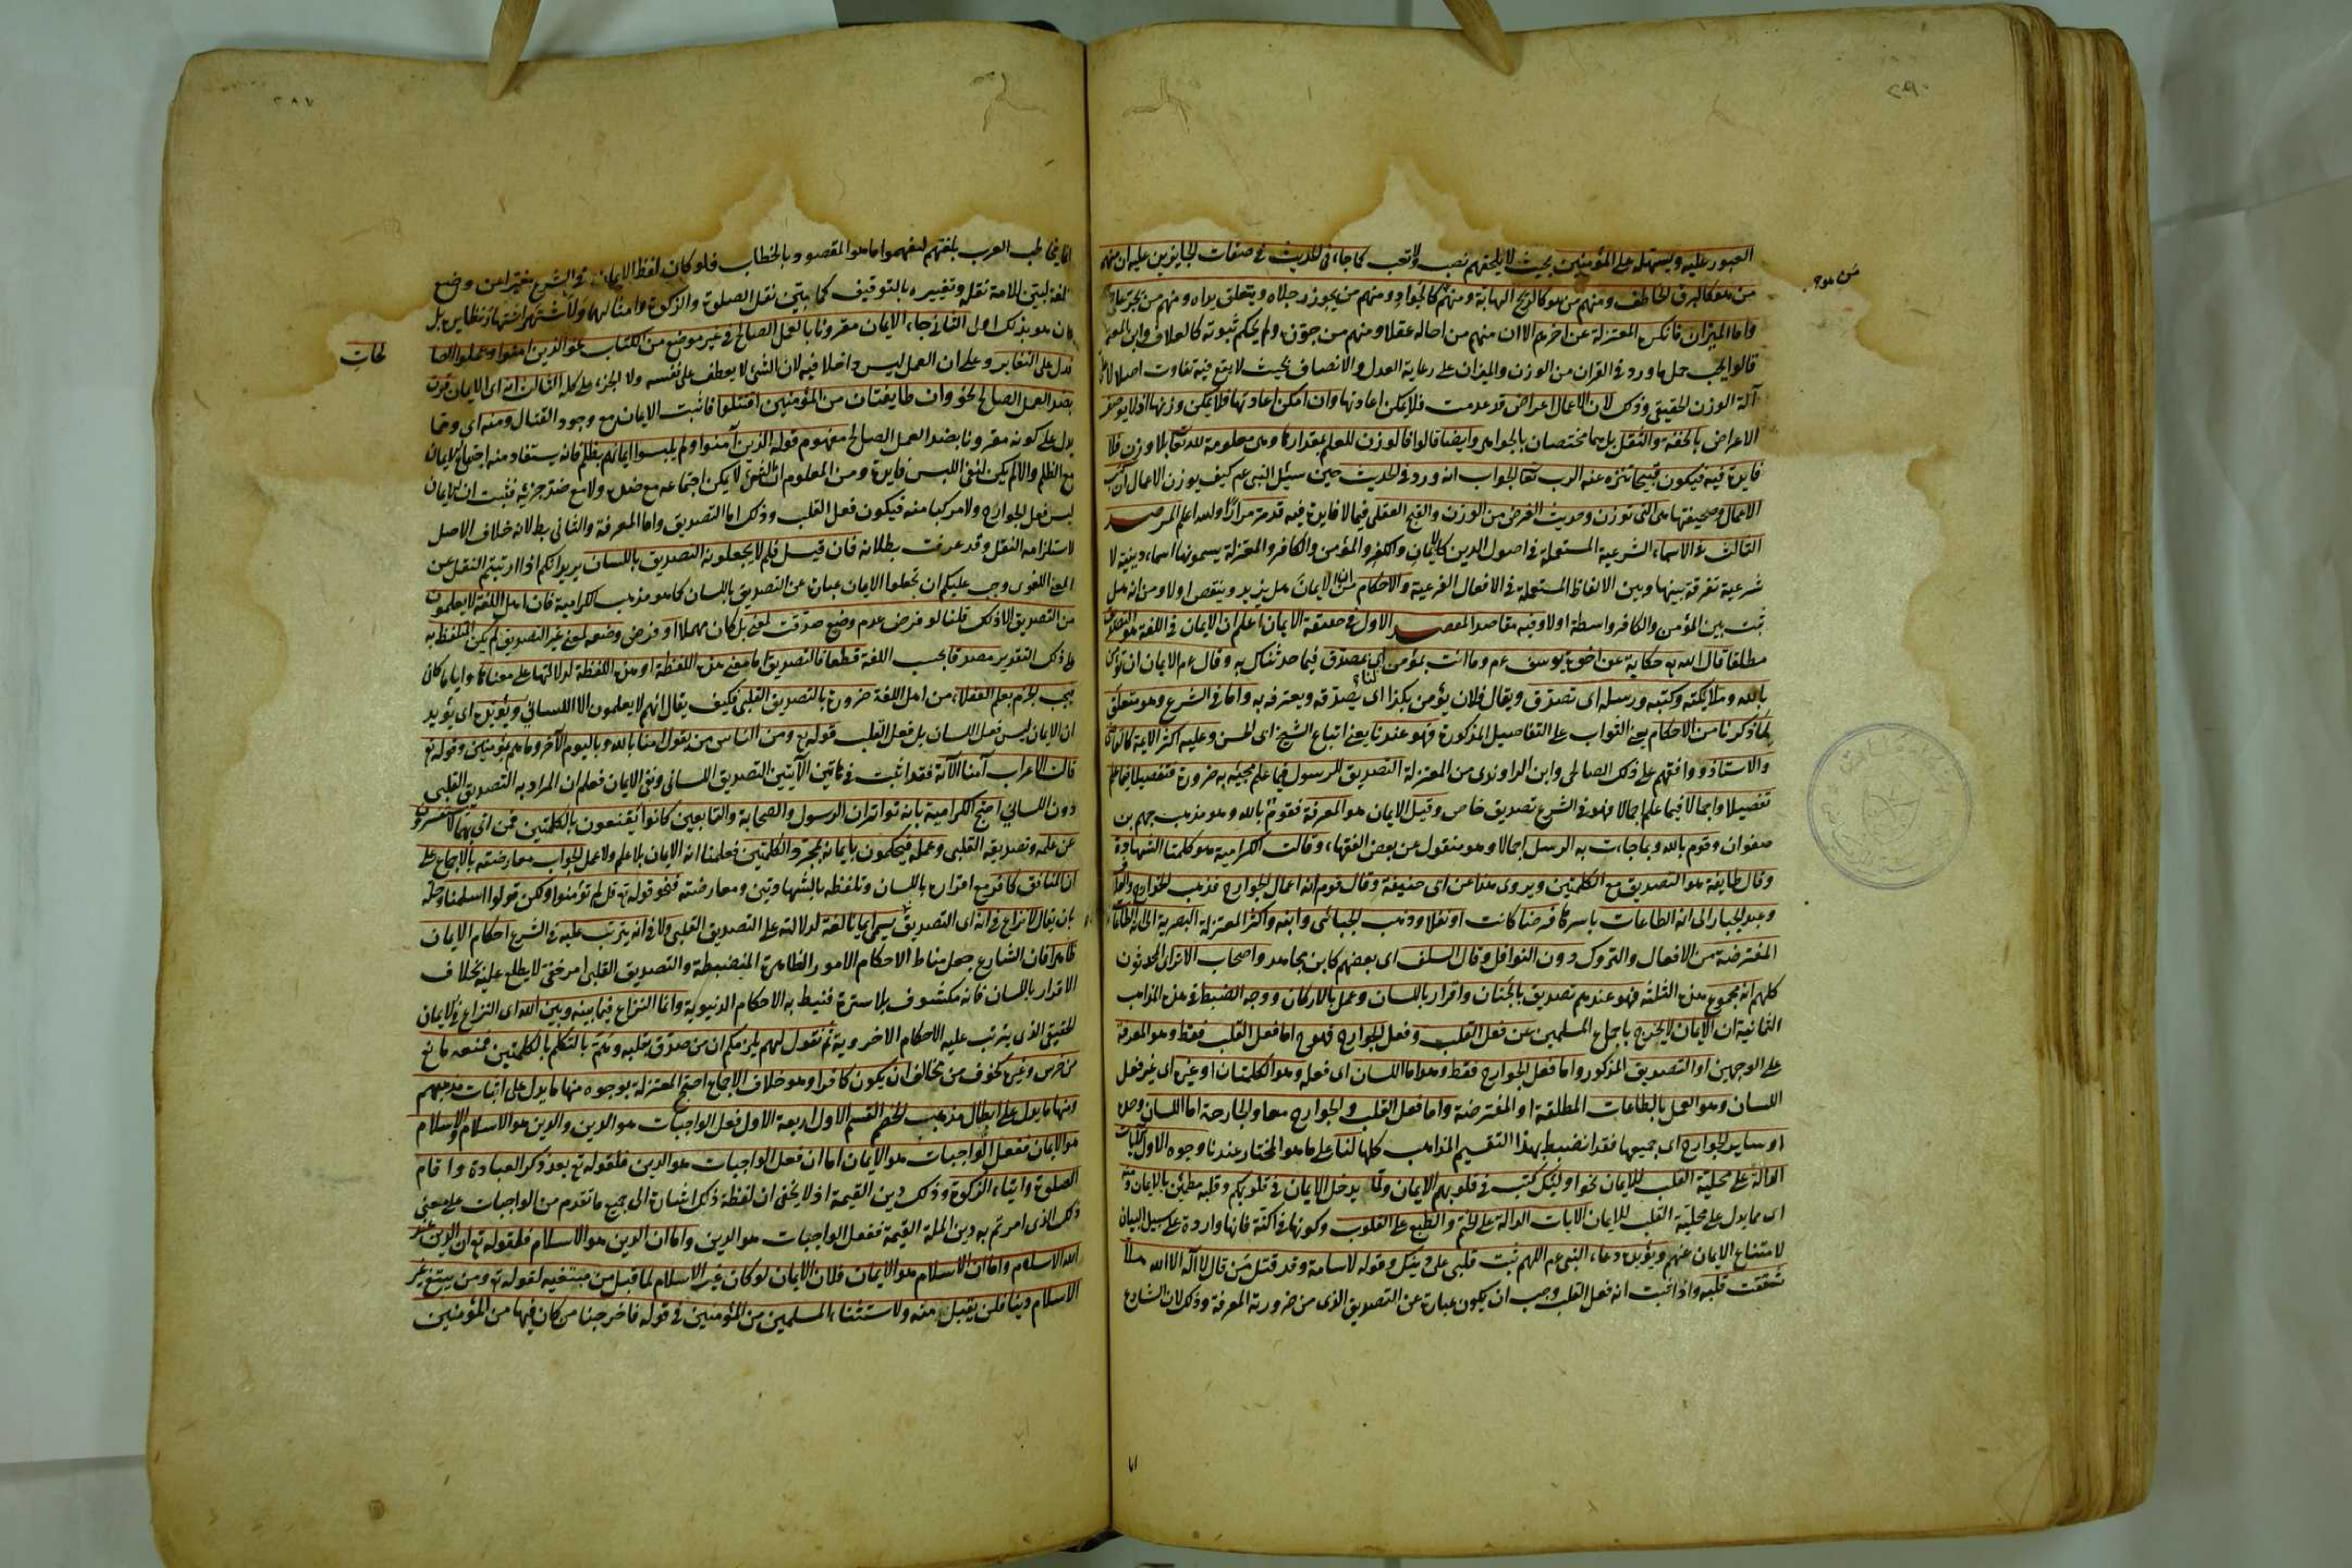 العبور عليه ويسهله على المؤمنين بحيث لا يلحقهم نصب ولا تعب كما جاء في الحديث في صفات الجايزين عليه ان منهم
من هو كالبرق الخاطف ومنهم من هو كالريح الهابة ومنهم كالجواد ومنهم من يجوز رجلاه ويتعلق يداه ومنهم من يجر على
واما الميزان فانكره المعتزلة عن اخرهم الا ان منهم من احاله عقلا ومنهم من جوزه ولم يحكم بثبوته كالعلاف وابن المعتمر
قالوا يجب حمل ما ورد في القران من الوزن والميزان على رعاية العدل والانصاف بحيث لا يقع فيه تفاوت اصلا لا على
آلة الوزن الحقيقي وذلك لان الاعمال اعراض قد عدمت فلا يمكن اعادتها وان امكن اعادتها فلا يمكن وزنها اذ لا يوصف
الاعراض بالخفة والثقل بل هما مختصان بالجواهر وايضا قالوا فالوزن للعلم بمقدارها وهي معلومة لله تعالى بلا وزن فلا
فايدة فيه فيكون قبيحا تنزه عنه الرب تعا الجواب انه ورد في الحديث حين سئل النبي عم كيف يوزن الاعمال ان كتب
الاعمال وصحيفتها هي التي توزن وحديث الغرض من الوزن والقبح العقلي فيما لا فايدة فيه قد مر مرارا والله اعلم المرصد
الثالث في الاسماء الشرعية المستعملة في اصول الدين كالايمان والكفر والمؤمن والكافر والمعتزلة يسمونها اسماء دينية لا
شرعية تفرقة بينها وبين الالفاظ المستعملة في الافعال الفرعية والاحكام من ان الايمان هل يزيد وينقص اولا ومن انه هل
ثبت بين المؤمن والكافر واسطة اولا وفيه مقاصد المقصد الاول في حقيقة الايمان اعلم ان الايمان في اللغة هو التصديق
مطلقا قال الله تع حكاية عن اخوة يوسف عم وما انت بمؤمن لنا اي بمصدق فيما حدثناك به وقال عم الايمان ان تؤمن
بالله وملايكته وكتبه ورسله اي تصدق ويقال فلان يؤمن بكذا اى يصدقه ويعترف به واما في الشرع وهو متعلق
لما ذكرنا من الاحكام يعني الثواب على التفاصيل المذكورة فهو عندنا يعني اتباع الشيخ ابى الحسن وعليه اكثر الائمة كالقاضي
والاستاذ ووافقهم على ذلك الصالحى وابن الراوندى من المعتزلة التصديق للرسول فيما علم مجيئه به ضرورة فتفصيلا فيما علم
تفصيلا واجمالا فيما علم اجمالا فهو في الشرع تصديق خاص وقيل الايمان هو المعرفة فقوم بالله وهو مذهب جهم بن
صفوان وقوم بالله وبما جاءت به الرسل اجمالا وهو منقول عن بعض الفقهاء وقالت الكرامية هو كلمتا الشهادة
وقال طايفة هو التصديق مع الكلمتين ويروى هذا عن ابى حنيفة وقال قوم انه اعمال الجوارح فذهب الخوارج والعلاف
وعبد الجبار الى انه الطاعات باسرها فرضا كانت او نفلا وذهب الجبائى وابنه واكثر المعتزلة البصرية الى انه الطاعات
المفترضة من الافعال والتروك دون النوافل وقال السلف اى بعضهم كابن مجاهد واصحاب الاثر اى المحدثون
كلهم انه مجموع هذه الثلثة فهو عندهم تصديق بالجنان واقرار باللسان وعمل بالاركان ووجه الضبط في هذه المذاهب
الثمانية ان الايمان لا يخرج باجماع المسلمين عن فعل القلب وفعل الجوارح فهو ح اما فعل القلب فقط وهو المعرفة
على الوجهين او التصديق المذكور واما فعل الجوارح فقط وهو اما اللسان اى فعله وهو الكلمتان او غيره اى غير فعل
اللسان وهو العمل بالطاعات المطلقة او المفترضة واما فعل القلب والجوارح معا والجارحة اما اللسان وحده
او ساير الجوارح اى جميعها فقد انضبط بهذا التقسيم المذاهب كلها لنا على ما هو المختار عندنا وجوه الاول الآيات
الدالة على محلية القلب للايمان نحو اوليك كتب في قلوبهم الايمان ولما يدخل الايمان في قلوبكم وقلبه مطمئن بالايمان ومنه
اى مما يدل على محلية القلب للايمان الايات الدالة على الختم والطبع على القلوب وكونها في اكنة فانها واردة على سبيل البيان
لامتناع الايمان عنهم ويؤيده دعاء النبي عم اللهم ثبت قلبى على دينك وقوله لاسامة وقد قتل من قال لا اله الا الله هلا
شققت قلبه واذا ثبت انه فعل القلب وجب ان يكون عبارة عن التصديق الذى من ضرورته المعرفة وذلك لان الشارع
انما يخاطب العرب بلغتهم ليفهموا ما هو المقصود بالخطاب فلو كان لفظ الايمان في الشرع مغيرا عن وضع
اللغة لبين للامة نقله وتغييره بالتوقيف كما بين نقل الصلوة والزكوة وامثالهما ولاشتهر اشتهار نظايره بل
كان هو بذلك اولى الثانى جاء الايمان مقرونا بالعمل الصالح في غير موضع من الكتاب نحو الذين امنوا وعملوا الصا
لحات
فدل على التغاير وعلى ان العمل ليس داخلا فيه لان الشئ لا يعطف على نفسه ولا الجزء على كله الثالث انه اى الايمان قرن
بضد العمل الصالح نحو وان طايفتان من المؤمنين اقتتلوا فاثبت الايمان مع وجود القتال ومنه اى ومما
يدل على كونه مقرونا بضد العمل الصالح مفهوم قوله الذين آمنوا ولم يلبسوا ايمانهم بظلم فانه يستفاد منه اجتماع الايمان
مع الظلم والا لم يكن لنفى اللبس فايدة ومن المعلوم ان الشئ لا يمكن اجتماعه مع ضده ولا مع ضد جزئه فثبت ان الايمان
ليس فعل الجوارح ولا مركبا منه فيكون فعل القلب وذلك اما التصديق واما المعرفة والثانى بطلانه خلاف الاصل
لاستلزامه النقل وقد عرفت بطلانه فان قيل فلم لا يجعلونه التصديق باللسان يريد انكم اذا ارتبتم النقل عن
المعنى اللغوى وجب عليكم ان تجعلوا الايمان عبارة عن التصديق باللسان كما هو مذهب الكرامية فان اهل اللغة لا يعلمون
من التصديق الا ذلك قلنا لو فرض عدم وضع صدقت لمعنى بل كان مهملا او فرض وضعه لمعنى غير التصديق لم يكن المتلفظ به
على ذلك التقدير مصدقا بحسب اللغة قطعا فالتصديق اما معنى هذه اللفظة او هذه اللفظة لدلالتها على معناها وايا ما كان
فيجب الجزم بعلم العقلاء من اهل اللغة ضرورة بالتصديق القلبى فكيف يقال انهم لا يعلمون الا اللسانى ويؤيده اى يؤيد
ان الايمان ليس فعل اللسان بل فعل القلب قوله تع ومن الناس من يقول امنا بالله وباليوم الآخر وما هم بمؤمنين وقوله تع
قالت الاعراب آمنا الآية فقد اثبت في هاتين الآيتين التصديق اللسانى ونفى الايمان فعلم ان المراد به التصديق القلبى
دون اللسانى احتج الكرامية بانه تواتر ان الرسول والصحابة والتابعين كانوا يقنعون بالكلمتين ممن اتى بهما لا يستفسرون
عن علمه وتصديقه القلبى وعمله فيحكمون بايمانه بمجرد الكلمتين فعلمنا انه الايمان بلا علم ولا عمل الجواب معارضته بالاجماع على
ان المنافق كافر مع اقراره باللسان وتلفظه بالشهادتين ومعارضته بنحو قوله تع قل لم تؤمنوا ولكن قولوا اسلمنا وحله
بان يقال لا نزاع في انه اى التصديق يسمى ايمانا لغة لدلالته على التصديق القلبى ولا في انه يترتب عليه في الشرع احكام الايمان
ظاهرا فان الشارع جعل مناط الاحكام الامور الظاهرة المنضبطة والتصديق القلبى امر خفى لا يطلع عليه بخلاف
الاقرار باللسان فانه مكشوف بلا سترة فنيط به الاحكام الدنيوية وانما النزاع فيما بينه وبين الله اى النزاع في الايمان
الحقيقى الذى يترتب عليه الاحكام الاخروية ثم نقول لهم يلزمكم ان من صدق بقلبه وهم بالتكلم بالكلمتين فمنعه مانع
من خرس وغيره كخوف من مخالف ان يكون كافرا وهو خلاف الاجماع احتج المعتزلة بوجوه منها ما يدل على اثبات مذهبهم
ومنها ما يدل على ابطال مذهب الخصم القسم الاول اربعة الاول فعل الواجبات هو الدين والدين هو الاسلام والاسلام
هو الايمان ففعل الواجبات هو الايمان اما ان فعل الواجبات هو الدين فلقوله تع بعد ذكر العبادة واقام
الصلوة وايتاء الزكوة وذلك دين القيمة اذ لا يخفى ان لفظة ذلك اشارة الى جميع ما تقدم من الواجبات على معنى
ذلك الذى امرتم به دين الملة القيمة ففعل الواجبات هو الدين واما ان الدين هو الاسلام فلقوله تع ان الدين عند
الله الاسلام واما ان الاسلام هو الايمان فلان الايمان لو كان غير الاسلام لما قبل من مبتغيه لقوله تع ومن يبتغ غير
الاسلام دينا فلن يقبل منه ولاستثناء المسلمين من المؤمنين في قوله فاخرجنا من كان فيها من المؤمنين